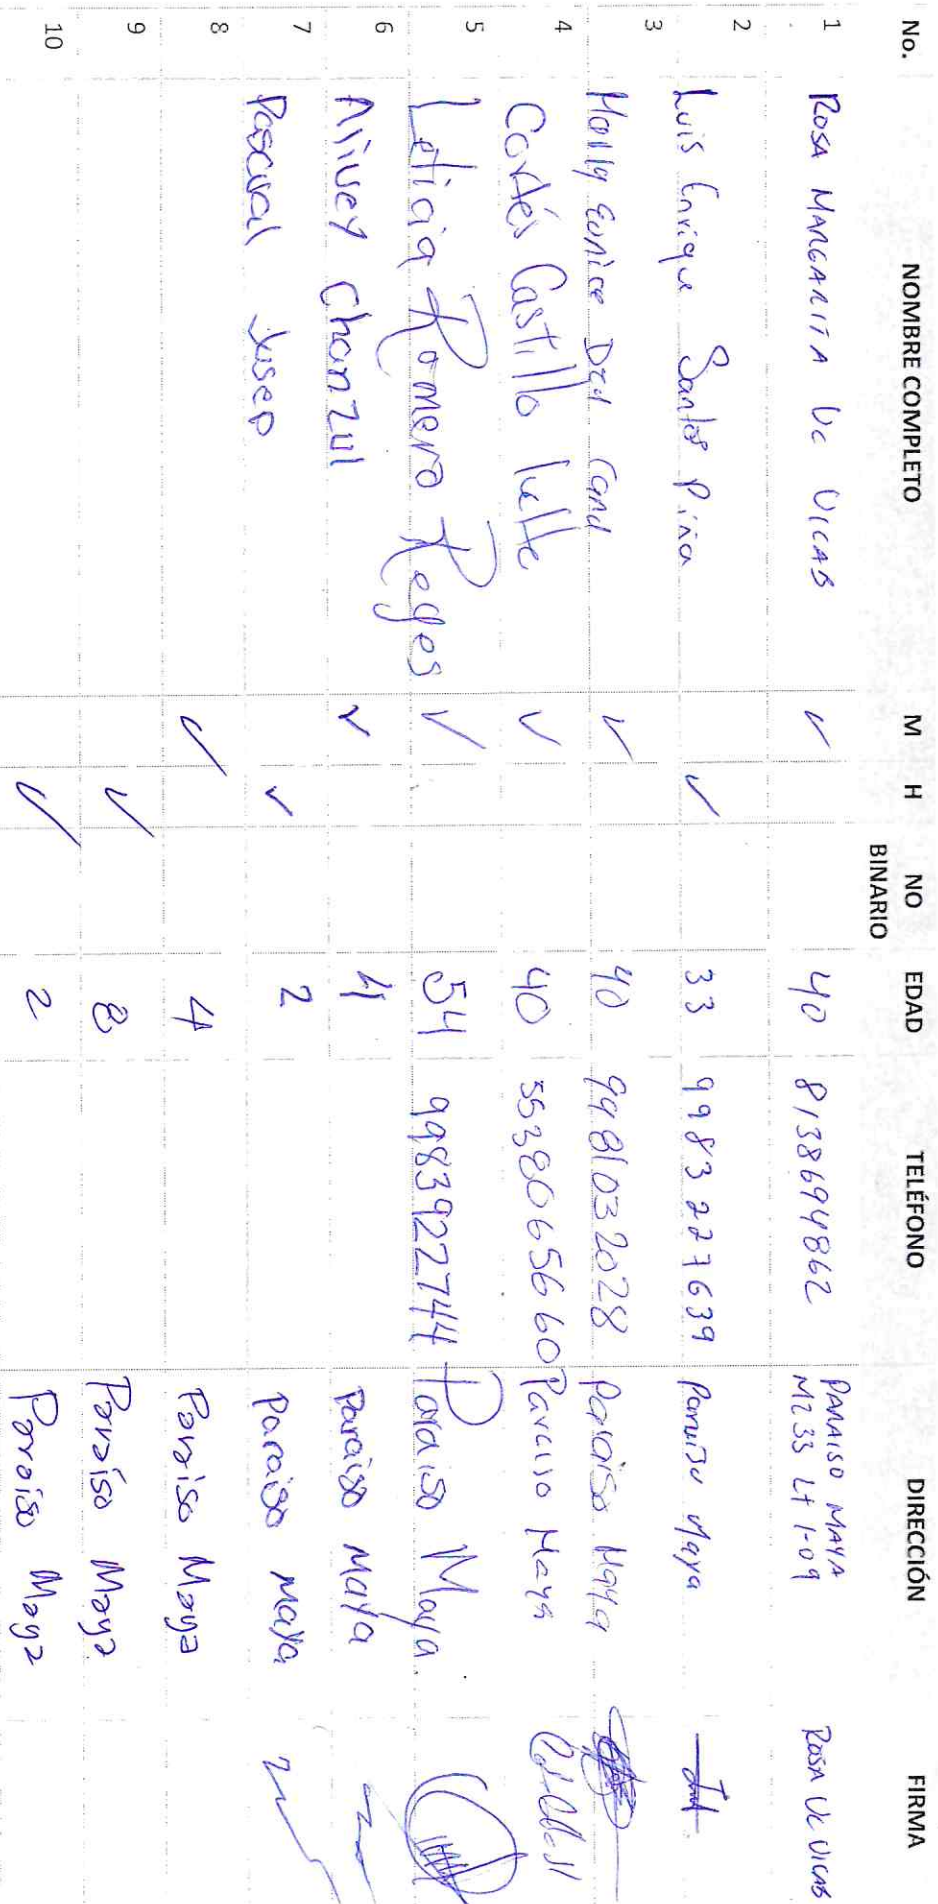 No. NOMBRE COMPLETO M H NO BINARIO EDAD TELÉFONO DIRECCIÓN FIRMA
1 ROSA MARGARITA UC UICAB ✓ 40 8138694862 PARAISO MAYA MZ 33 Lt 1-09 ROSA UC UICAB
2 Luis Enrique Santos Piña ✓ 33 9983227639 Paraiso Maya
3 Eunice Dzul ✓ 40 9981032028 Paraiso Maya
4 Cortés Castillo ✓ 40 5538065660 Paraiso Maya
5 Leticia Romero Reyes ✓ 54 9983922744 Paraiso Maya
6 Chanzul ✓ Paraiso Maya
7 Pascual Jusep ✓ 2 Paraiso Maya
8 ✓ 4 Paraiso Maya
9 ✓ 8 Paraíso Maya
10 ✓ 2 Paraíso Maya